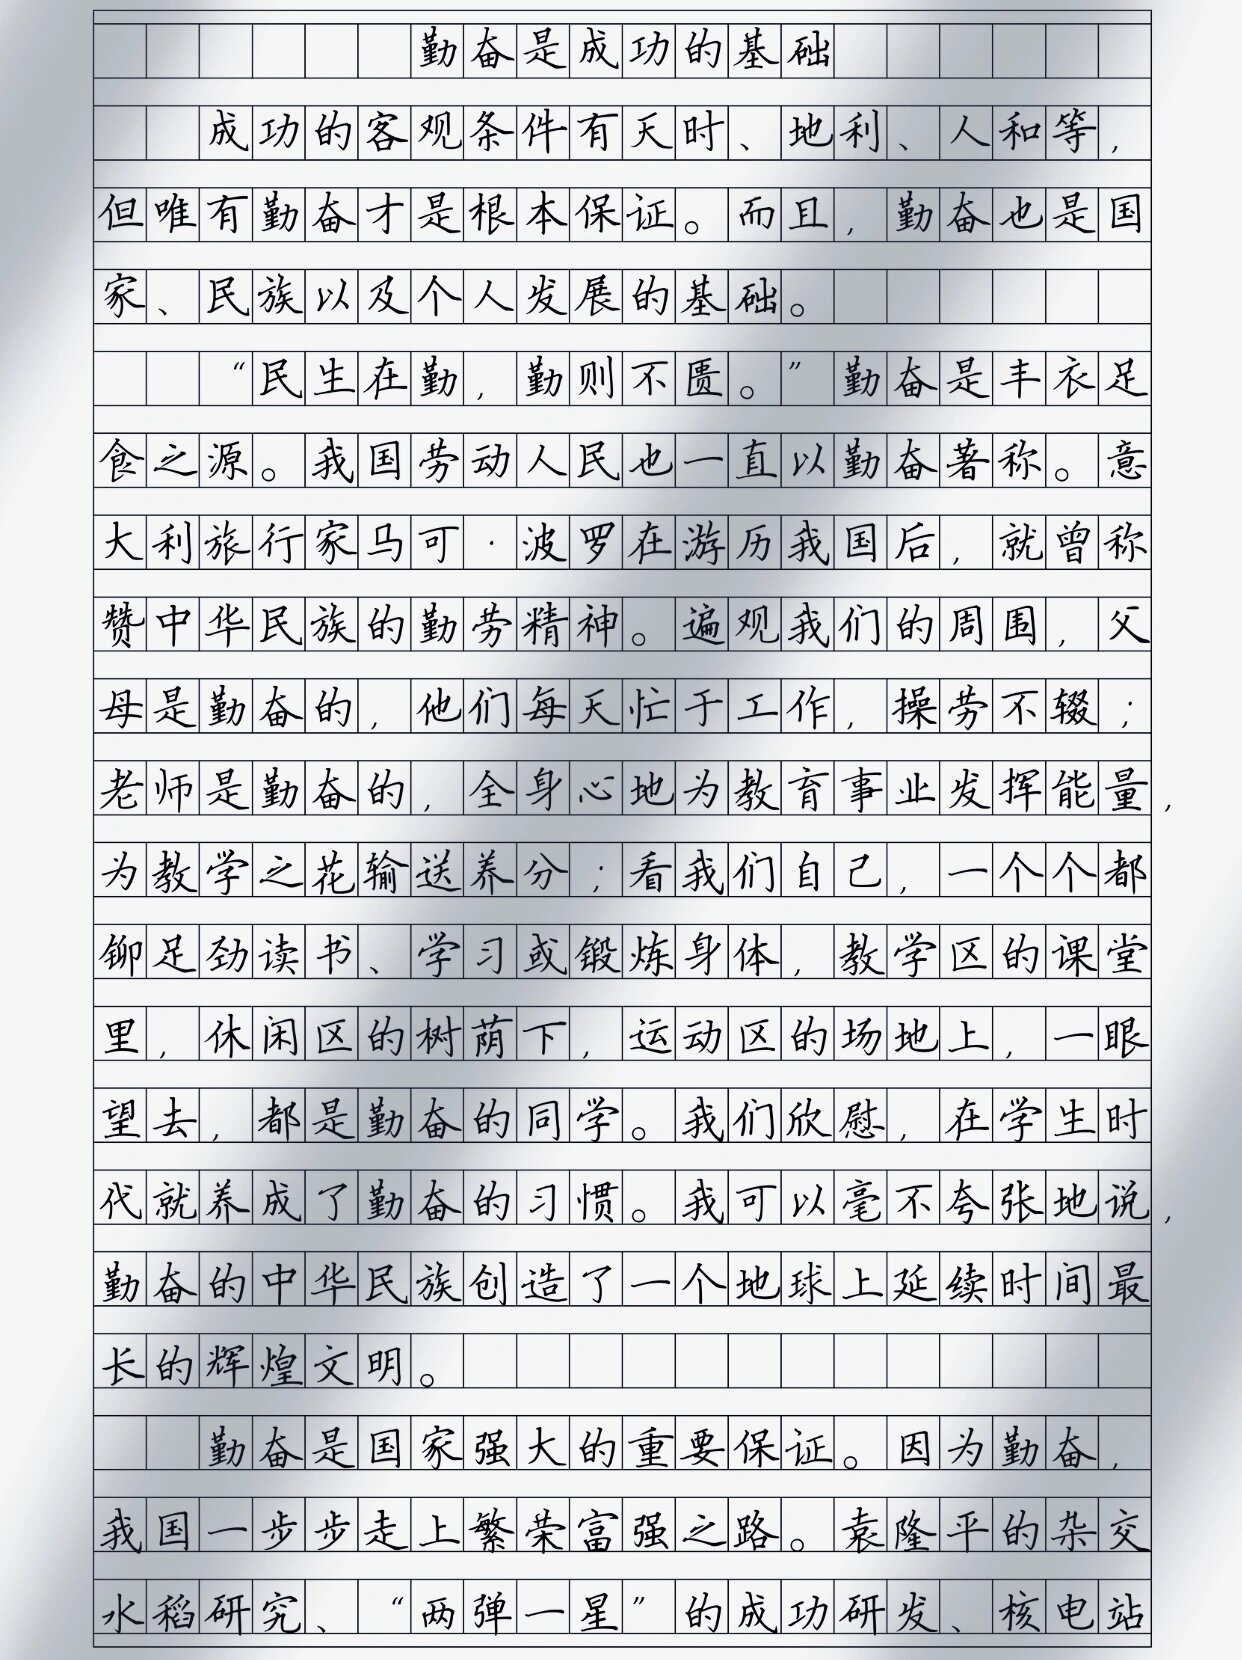 勤奋是成功的基础
成功的客观条件有天时、地利、人和等，
但唯有勤奋才是根本保证。而且，勤奋也是国
家、民族以及个人发展的基础。
“民生在勤，勤则不匮。”勤奋是丰衣足
食之源。我国劳动人民也一直以勤奋著称。意
大利旅行家马可·波罗在游历我国后，就曾称
赞中华民族的勤劳精神。遍观我们的周围，父
母是勤奋的，他们每天忙于工作，操劳不辍；
老师是勤奋的，全身心地为教育事业发挥能量，
为教学之花输送养分；看我们自己，一个个都
铆足劲读书、学习或锻炼身体，教学区的课堂
里，休闲区的树荫下，运动区的场地上，一眼
望去，都是勤奋的同学。我们欣慰，在学生时
代就养成了勤奋的习惯。我可以毫不夸张地说，
勤奋的中华民族创造了一个地球上延续时间最
长的辉煌文明。
勤奋是国家强大的重要保证。因为勤奋，
我国一步步走上繁荣富强之路。袁隆平的杂交
水稻研究、“两弹一星”的成功研发、核电站